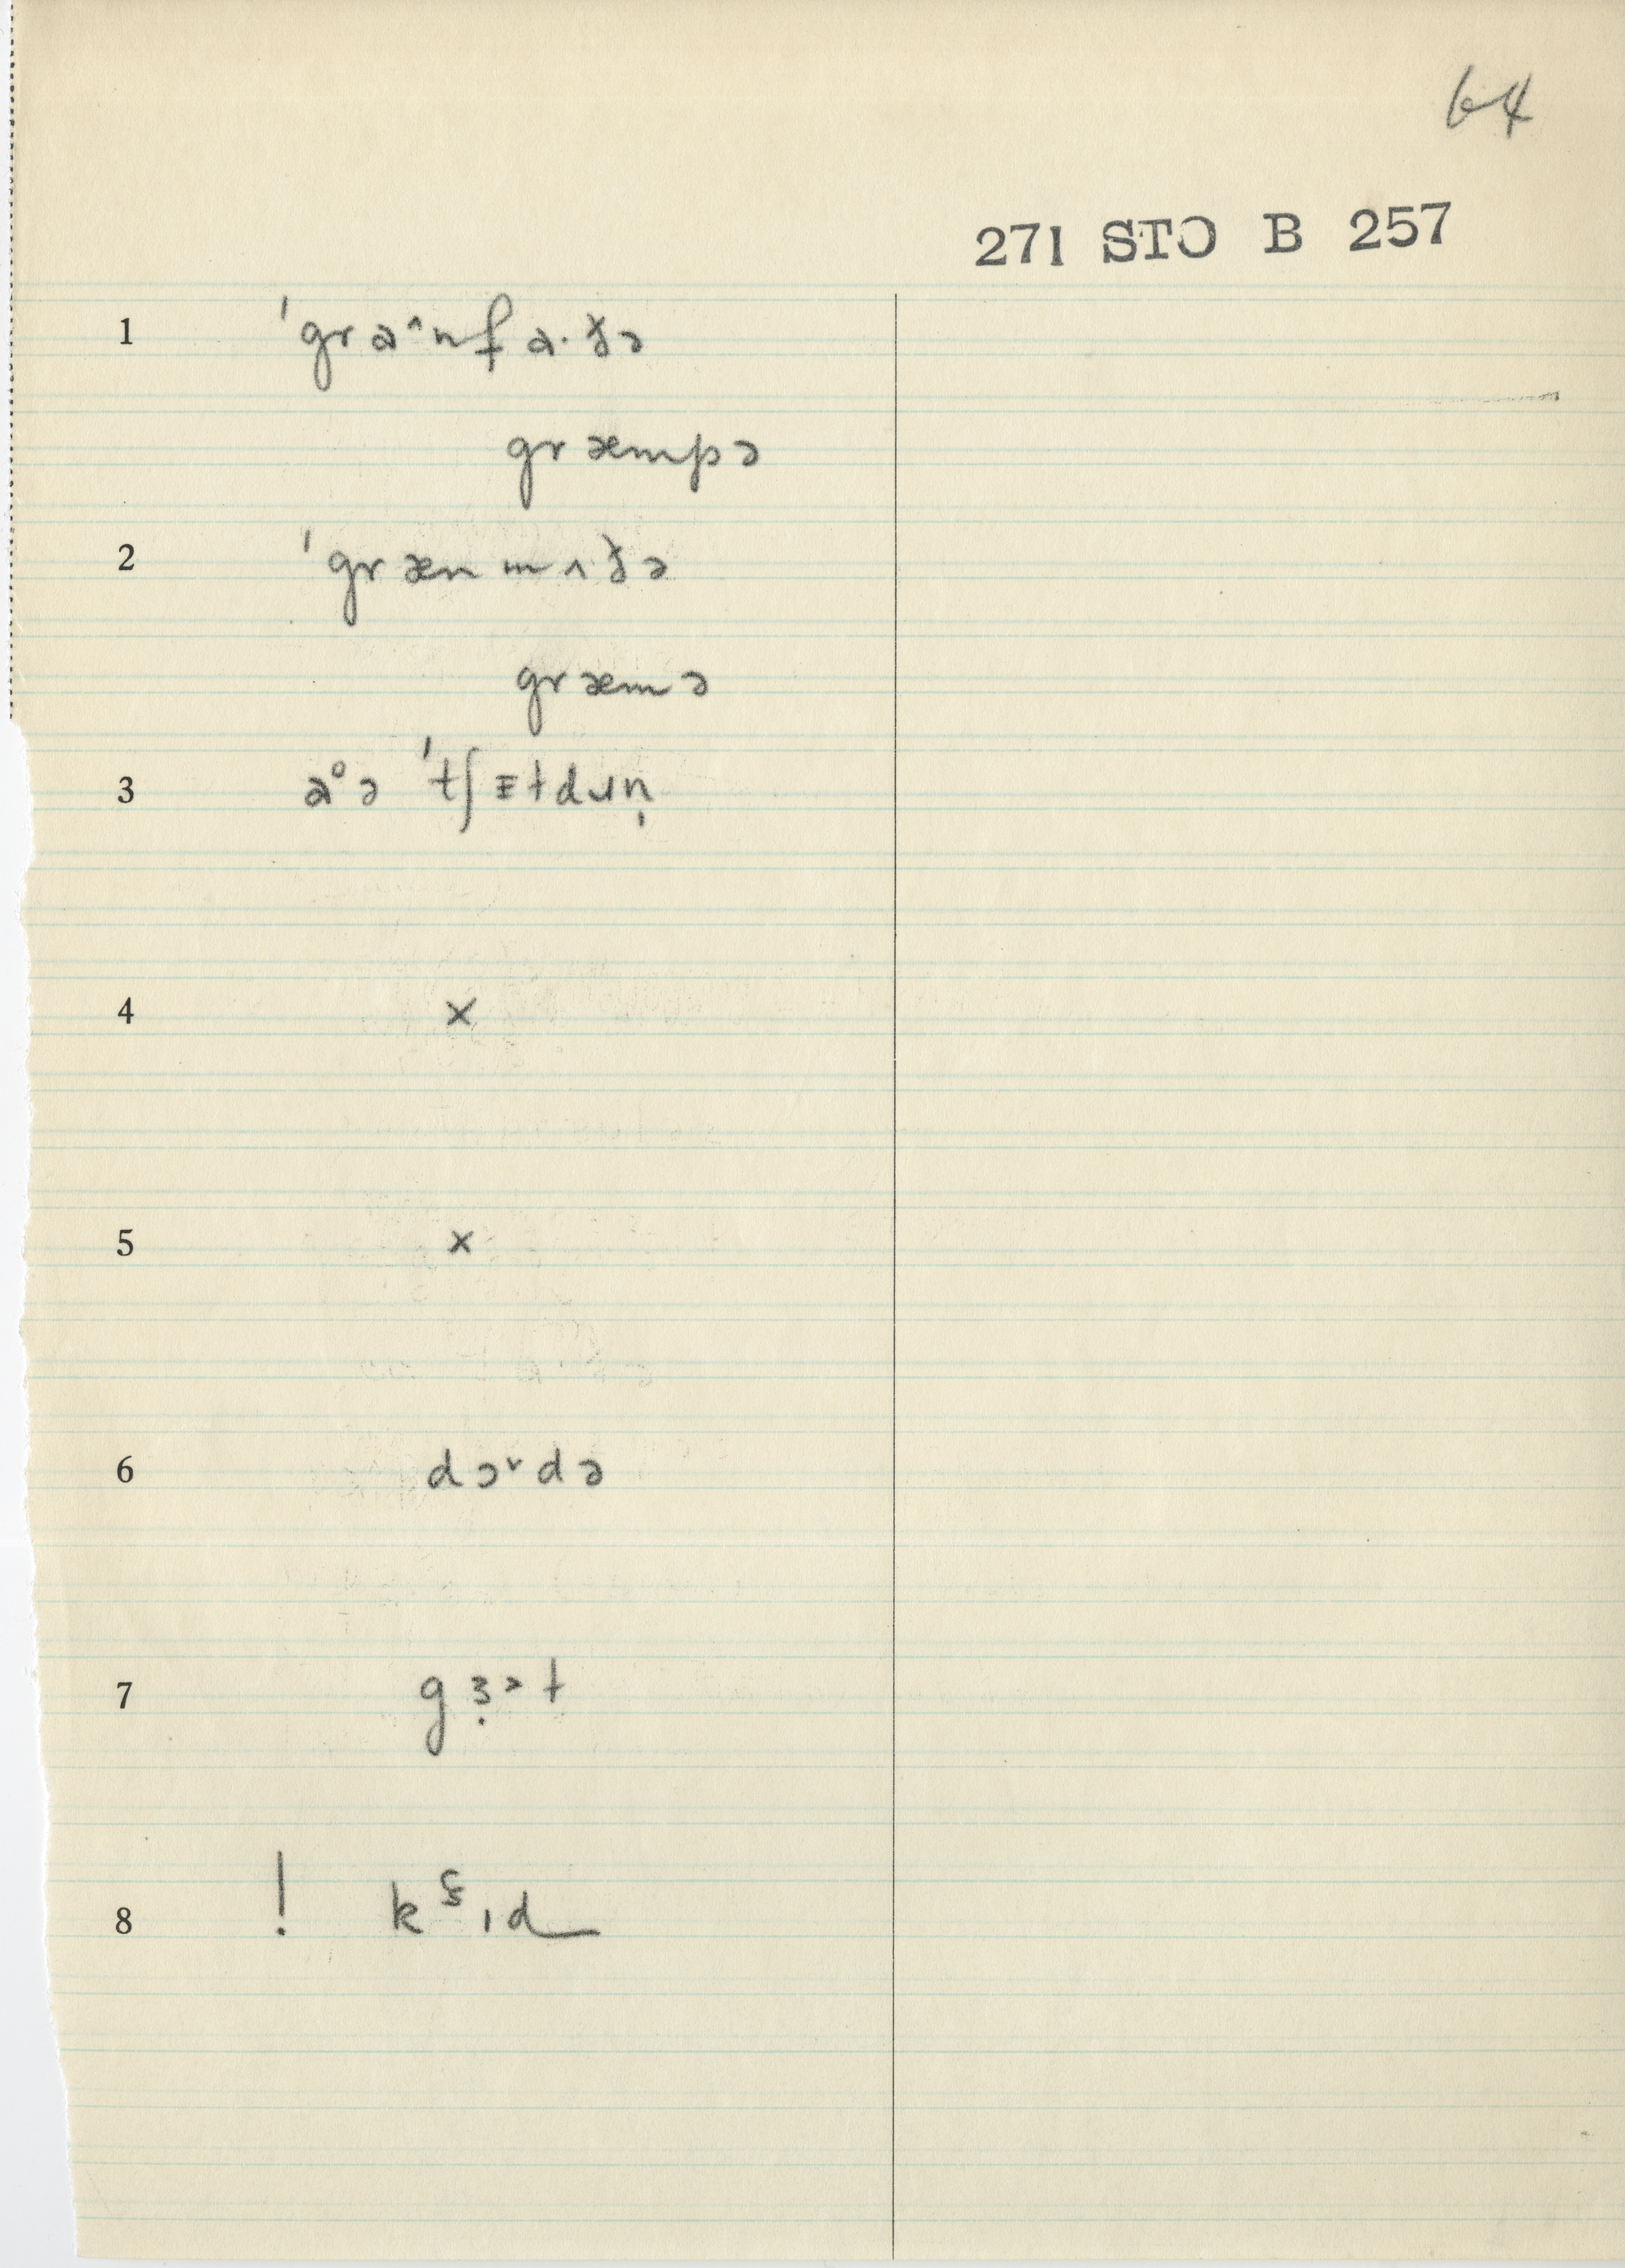 64
271 STO B 257
1 ˈgraˆnfa·ðə
græmpə
2 ˈgræn mʌðə
græmə
3 a°ə ˈtʃɪtdɹən̩
4 ×
5 ×
6 dɔᵛdə
7 gɜ̣˃t
8 ! kɪd